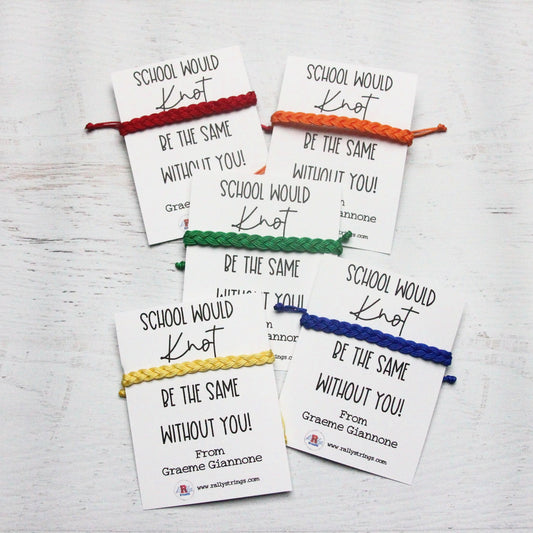 SCHOOL WOULD
Knot
BE THE SAME
WITHOUT YOU!
From
Graeme
SCHOOL WOULD
Knot
BE THE SAME
WITHOUT YOU!
Giannone
www.rallystrings.com
SCHOOL WOULD
Knot
BE THE SAME
WITHOUT YOU!
SCHOOL WOULD
Knot
BE THE SAME
WITHOUT YOU!
From
Graeme Giannone
R
www.rallystrings.com
SCHOOL WOULD
Knot
BE THE SAME
WITHOUT YOU!
From
Graeme Giannone
R
www.rallystrings.com